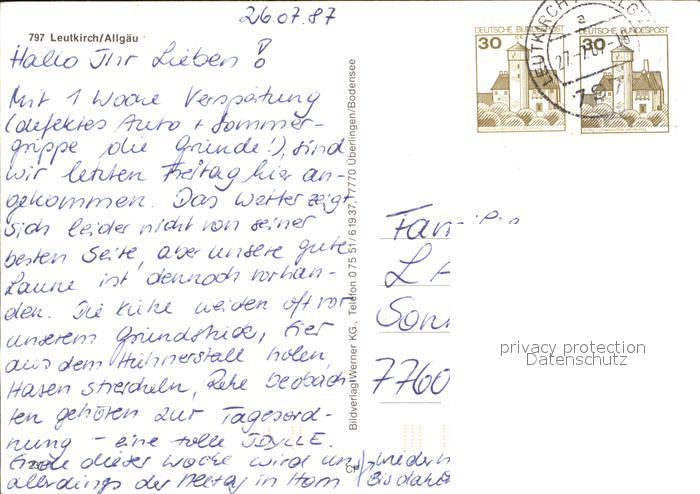 26.07.87
797 Leutkirch/Allgäu
Hallo Ihr Lieben!
Mit 1 Woche Verspätung
(defektes Auto + Sommer-
grippe die Gründe!), sind
wir letzten Freitag hier an-
gekommen. Das Wetter zeigt
sich leider nicht von seiner
besten Seite, aber unsere gute
Laune ist dennoch vorhan-
den. Die Kühe weiden oft vor
unserem Grundstück, Eier
aus dem Hühnerstall holen
Hasen streicheln, Rehe beobach-
ten gehören zur Tagesord-
nung - eine tolle IDYLLE.
Ende dieser Woche wird uns
allerdings der Alltag in Hom
wiederh
Bis dahin
Bildverlag Werner KG., Telefon 0 75 51/6 19 37, 17770 Überlingen/Bodensee
DEUTSCHE BUNDESPOST
30
DEUTSCHE BUNDESPOST
30
LEUTKIRCH
a
27.-7.87
797
Fam
L
Son
7760
privacy protection
Datenschutz